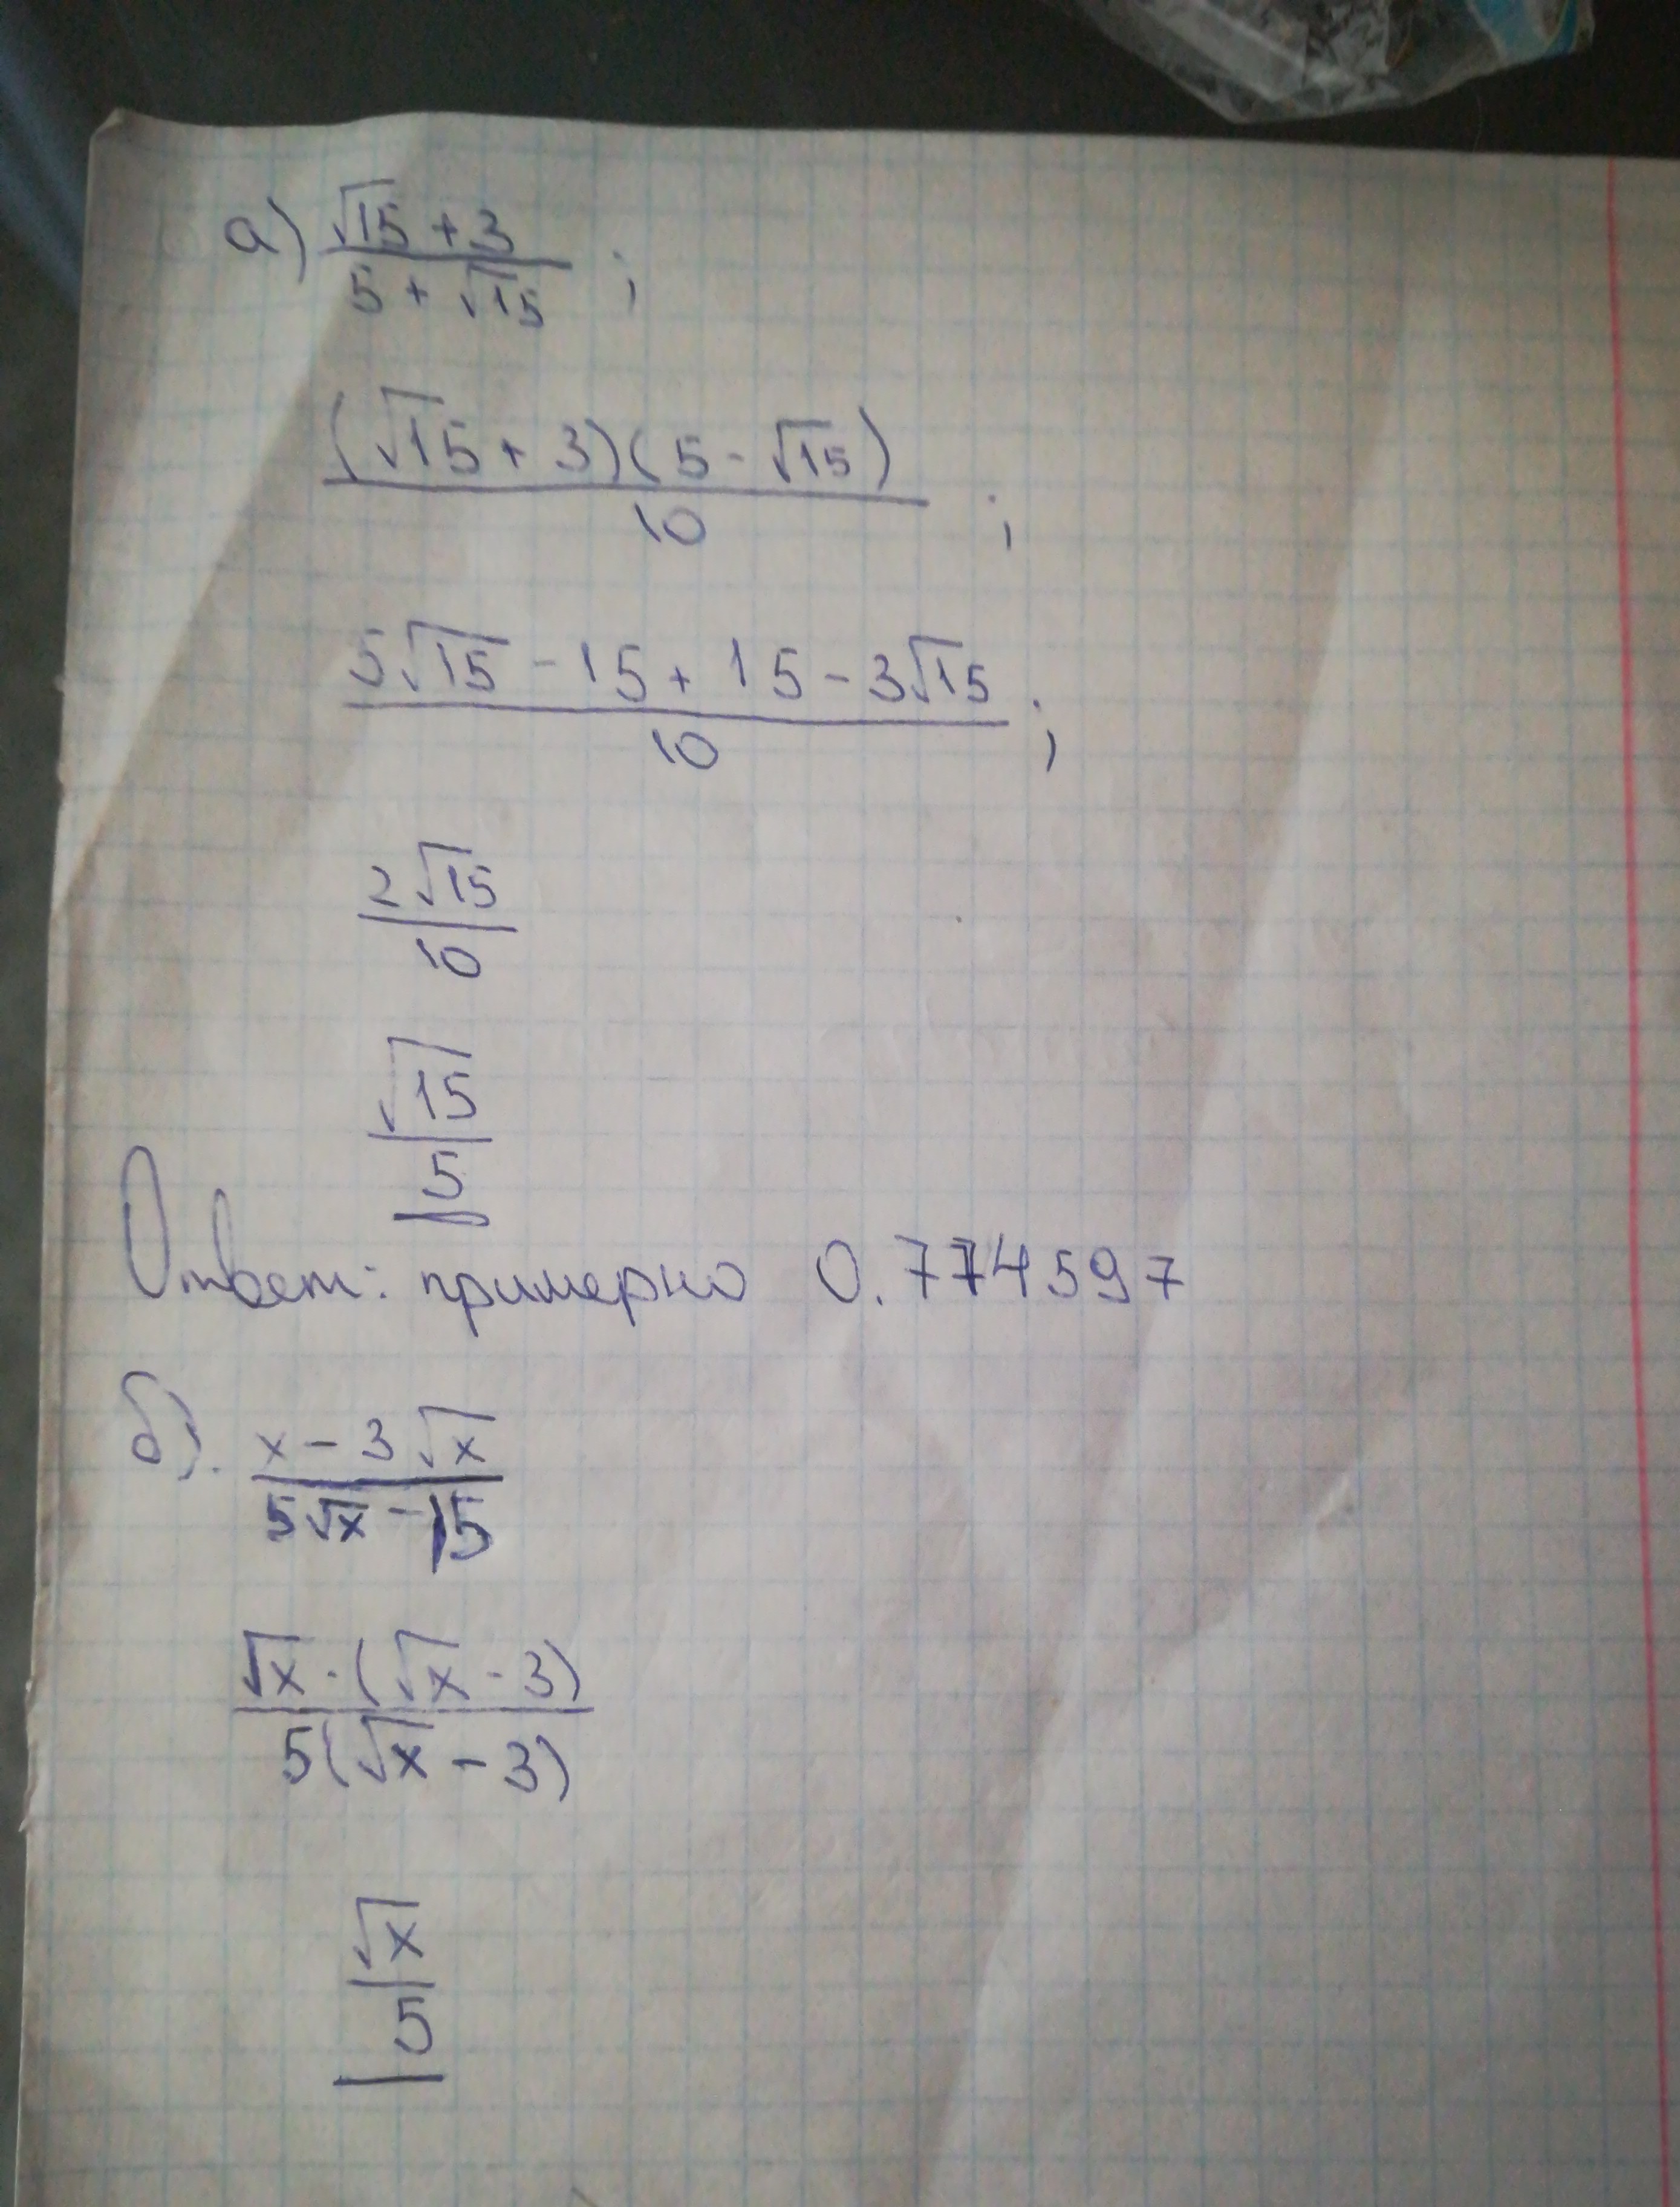 а) (√15 + 3)/(5 + √15) ;
((√15 + 3)(5 - √15))/10 ;
(5√15 - 15 + 15 - 3√15)/10 ;
2√15/10
√15/5
Ответ: примерно 0.774597
б). (x - 3√x)/(5√x - 15)
(√x · (√x - 3))/(5(√x - 3))
√x/5